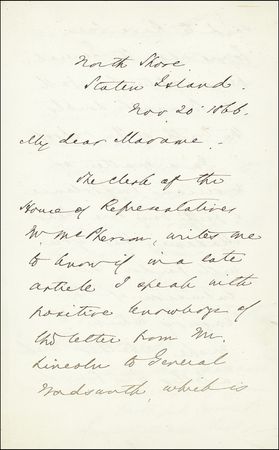 North Shore.
Staten Island.
Nov. 20. 1866.
My dear Madame.
The Clerk of the
House of Representatives
Mr. McPherson, writes me
to know if in a late
article I speak with
positive knowledge of
the letter from Mr.
Lincoln to General
Wadsworth, which is